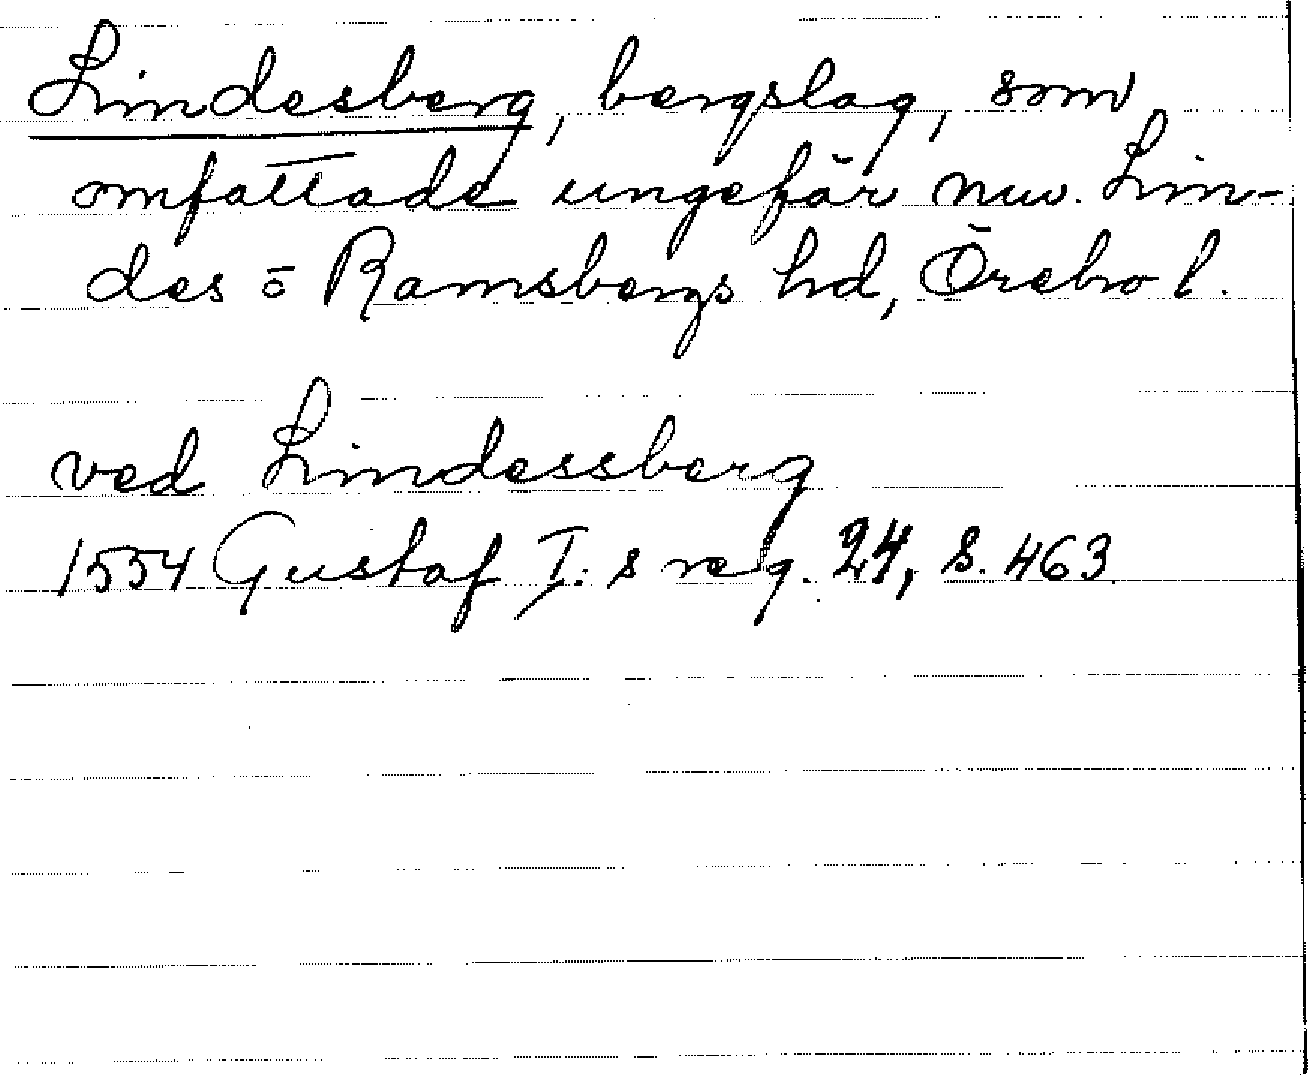 Lindesberg, bergslag, som
omfattade ungefär nuv. Lin-
des o Ramsbergs hd, Örebro l.
ved Lindessberg
1554 Gustaf I:s reg. 24, s. 463.